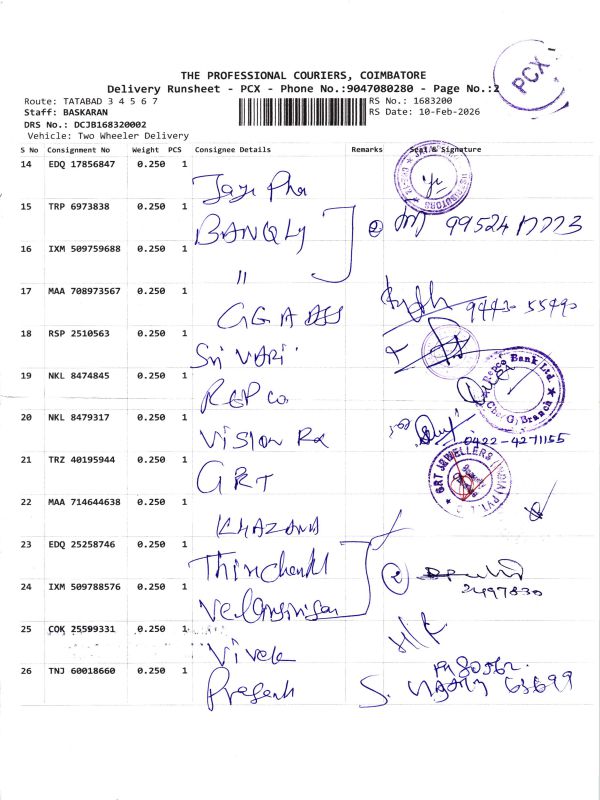 PCX
THE PROFESSIONAL COURIERS, COIMBATORE
Delivery Runsheet - PCX - Phone No.:9047080280 - Page No.:2
Route: TATABAD 3 4 5 6 7
RS No.: 1683200
Staff: BASKARAN
RS Date: 10-Feb-2026
DRS No.: DCJB168320002
Vehicle: Two Wheeler Delivery
S No Consignment No Weight PCS Consignee Details Remarks Seal & Signature
14 EDQ 17856847 0.250 1
15 TRP 6973838 0.250 1
BANGLY 2
16 IXM 509759688 0.250 1
"
17 MAA 708973567 0.250 1
18 RSP 2510563 0.250 1
Sri VARI
19 NKL 8474845 0.250 1
REP Co
Repco Bank Ltd.
20 NKL 8479317 0.250 1
Vision Rx 0422-4271155
21 TRZ 40195944 0.250 1
GRT
GRT JEWELLERS (INDIA) PVT. LTD.
22 MAA 714644638 0.250 1
KHAZANA
23 EDQ 25258746 0.250 1
2
24 IXM 509788576 0.250 1
2497830
25 COK 25599331 0.250 1
Vivek
26 TNJ 60018660 0.250 1
Prasanth